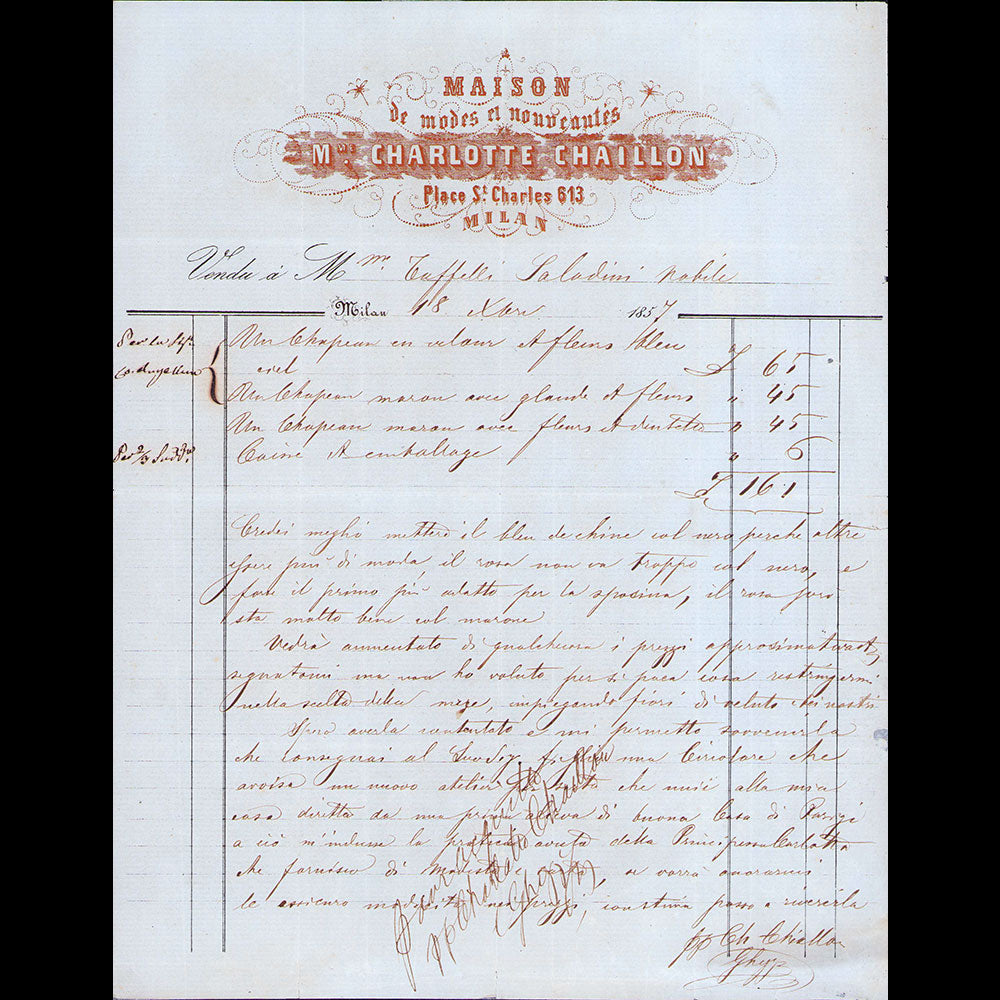 MAISON
de modes et nouveautés
Mme CHARLOTTE CHAILLON
Place St. Charles 613
MILAN
Vendu à Mme Taffelli Saladini nobile
Milan 18 Xbre 1857
Per la Sigra
Un Chapeau en velour et fleurs bleu £ 65
ciel
Un Chapeau maron avec glands et fleurs " 45
Un Chapeau maron avec fleurs et dentelo " 45
Caine et emballage " 6
£ 161
Credei meglio mettere il bleu de chine col nero perche oltre
essere più di moda il rosa non va troppo col nero, e
fare il primo più adatto per la sposina, il rosa
sta molto bene col marone
Vedrà aumentato di qualchecosa i prezzi
segnatomi ma non ho voluto per si poca cosa restringermi
nella scelta della merce, impiegando fiori di veluto
Spero averla contentata e mi permetto sovvenirla
che consegnai al una Circolare che
avvisa un nuovo atelier che unii alla mia
casa diretta da una prima allieva di buona Casa di Parigi
a ciò m'indusse la pratica avuta della Principessa Carlotta
che fornisco di Modista e se vorrà onorarmi
le assicuro prezzi, passo a riverirla
pp Ch Chaillon
Ghezzi
Pour acquit
pp Charlotte Chaillon
Ghezzi